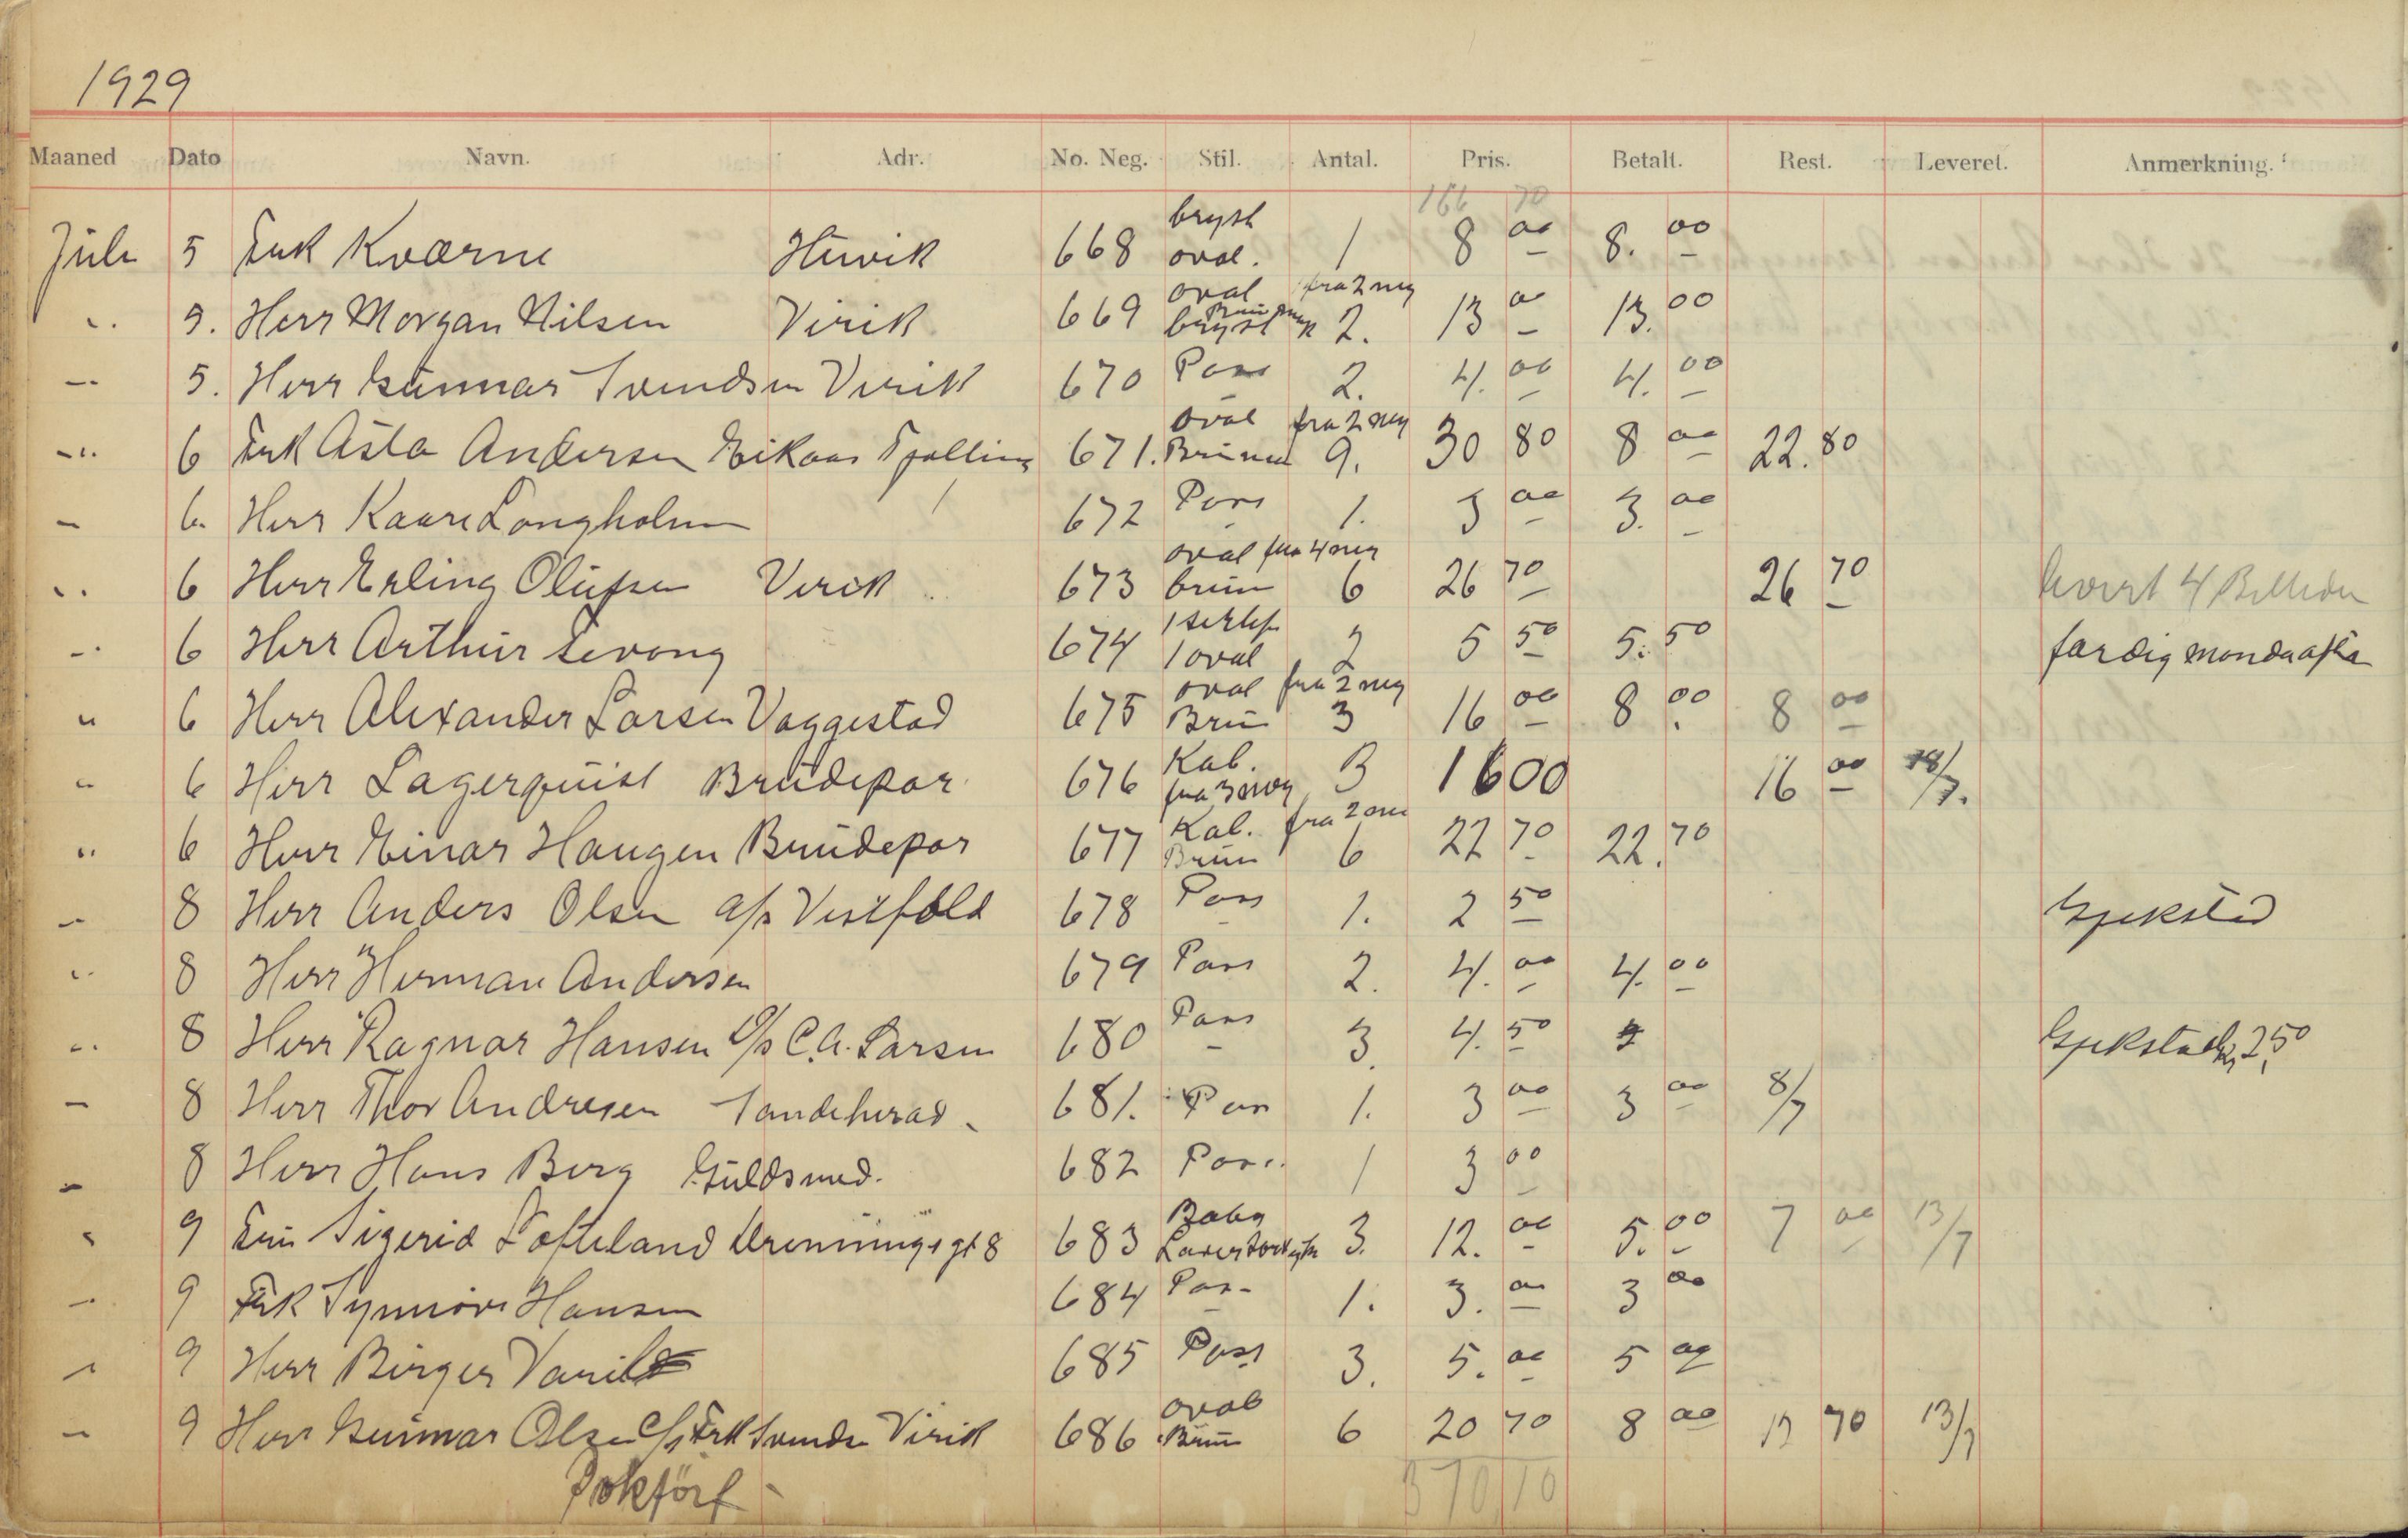 1929
Maaned Dato Navn. Adr. No. Neg. Stil. Antal. Pris. Betalt. Rest. Leveret. Anmerkning.
166 70
bryst
Juli 5 Frk Kværne Huvik 668 oval. 1 8 00 8. 00
oval fra 2 neg
" 5. Herr Morgan Nilsen Virik 669 bryst 2. 13 00 13. 00
— 5. Herr Gunnar Svendsen Virik 670 Pass 2. 4. 00 4. 00
oval fra 2 neg
" 6 Frk Asta Andersen Eikaas Tjølling 671. Brun 9. 30 80 8 00 22. 80
— 6. Herr Kaare Langholm 672 Pass 1. 3 00 3. 00
oval fra 4 neg
" 6 Herr Erling Olufsen Virik 673 brun 6 26 70 26 70 levert 4 Billeder
" 6 Herr Arthur Sevang 674 1 oval 2 5 50 5. 50 færdig
oval fra 2 neg
" 6 Herr Alexander Larsen Vaggestad 675 Brun 3 16 00 8 00 8 00
Kab.
" 6 Herr Lagerquist Brudepar 676 fra 3 neg 3 16 00 16 00 18/7.
Kab. fra 2 neg
" 6 Herr Einar Haugen Brudepar 677 Brun 6 22 70 22. 70
— 8 Herr Anders Olsen a/s Vestfold 678 Pass 1. 2 50 Gjekstad
" 8 Herr Herman Andersen 679 Pass 2. 4. 00 4. 00
" 8 Herr Ragnar Hansen C.A. Larsen 680 Pass 3. 4. 50 Gjekstad 2,50
— 8 Herr Thor Andresen Sandeherad. 681. Pass 1. 3 00 3 00 8/7
— 8 Herr Hans Berg Guldsmed. 682 Pass. 1 3 00
Baby
" 9 Fru Sigerid Lofteland Dronningsgt 8 683 3. 12. 00 5. 00 7 00 13/7
— 9 Frk Synnøve Hansen 684 Pas- 1. 3. 00 3 00
— 9 Herr Birger Varild 685 Pass 3. 5. 00 5 00
oval
— 9 Herr Gunnar Olsen Frk Svendsen Virik 686 Brun 6 20 70 8 00 12 70 13/7
Bokförf
370 10